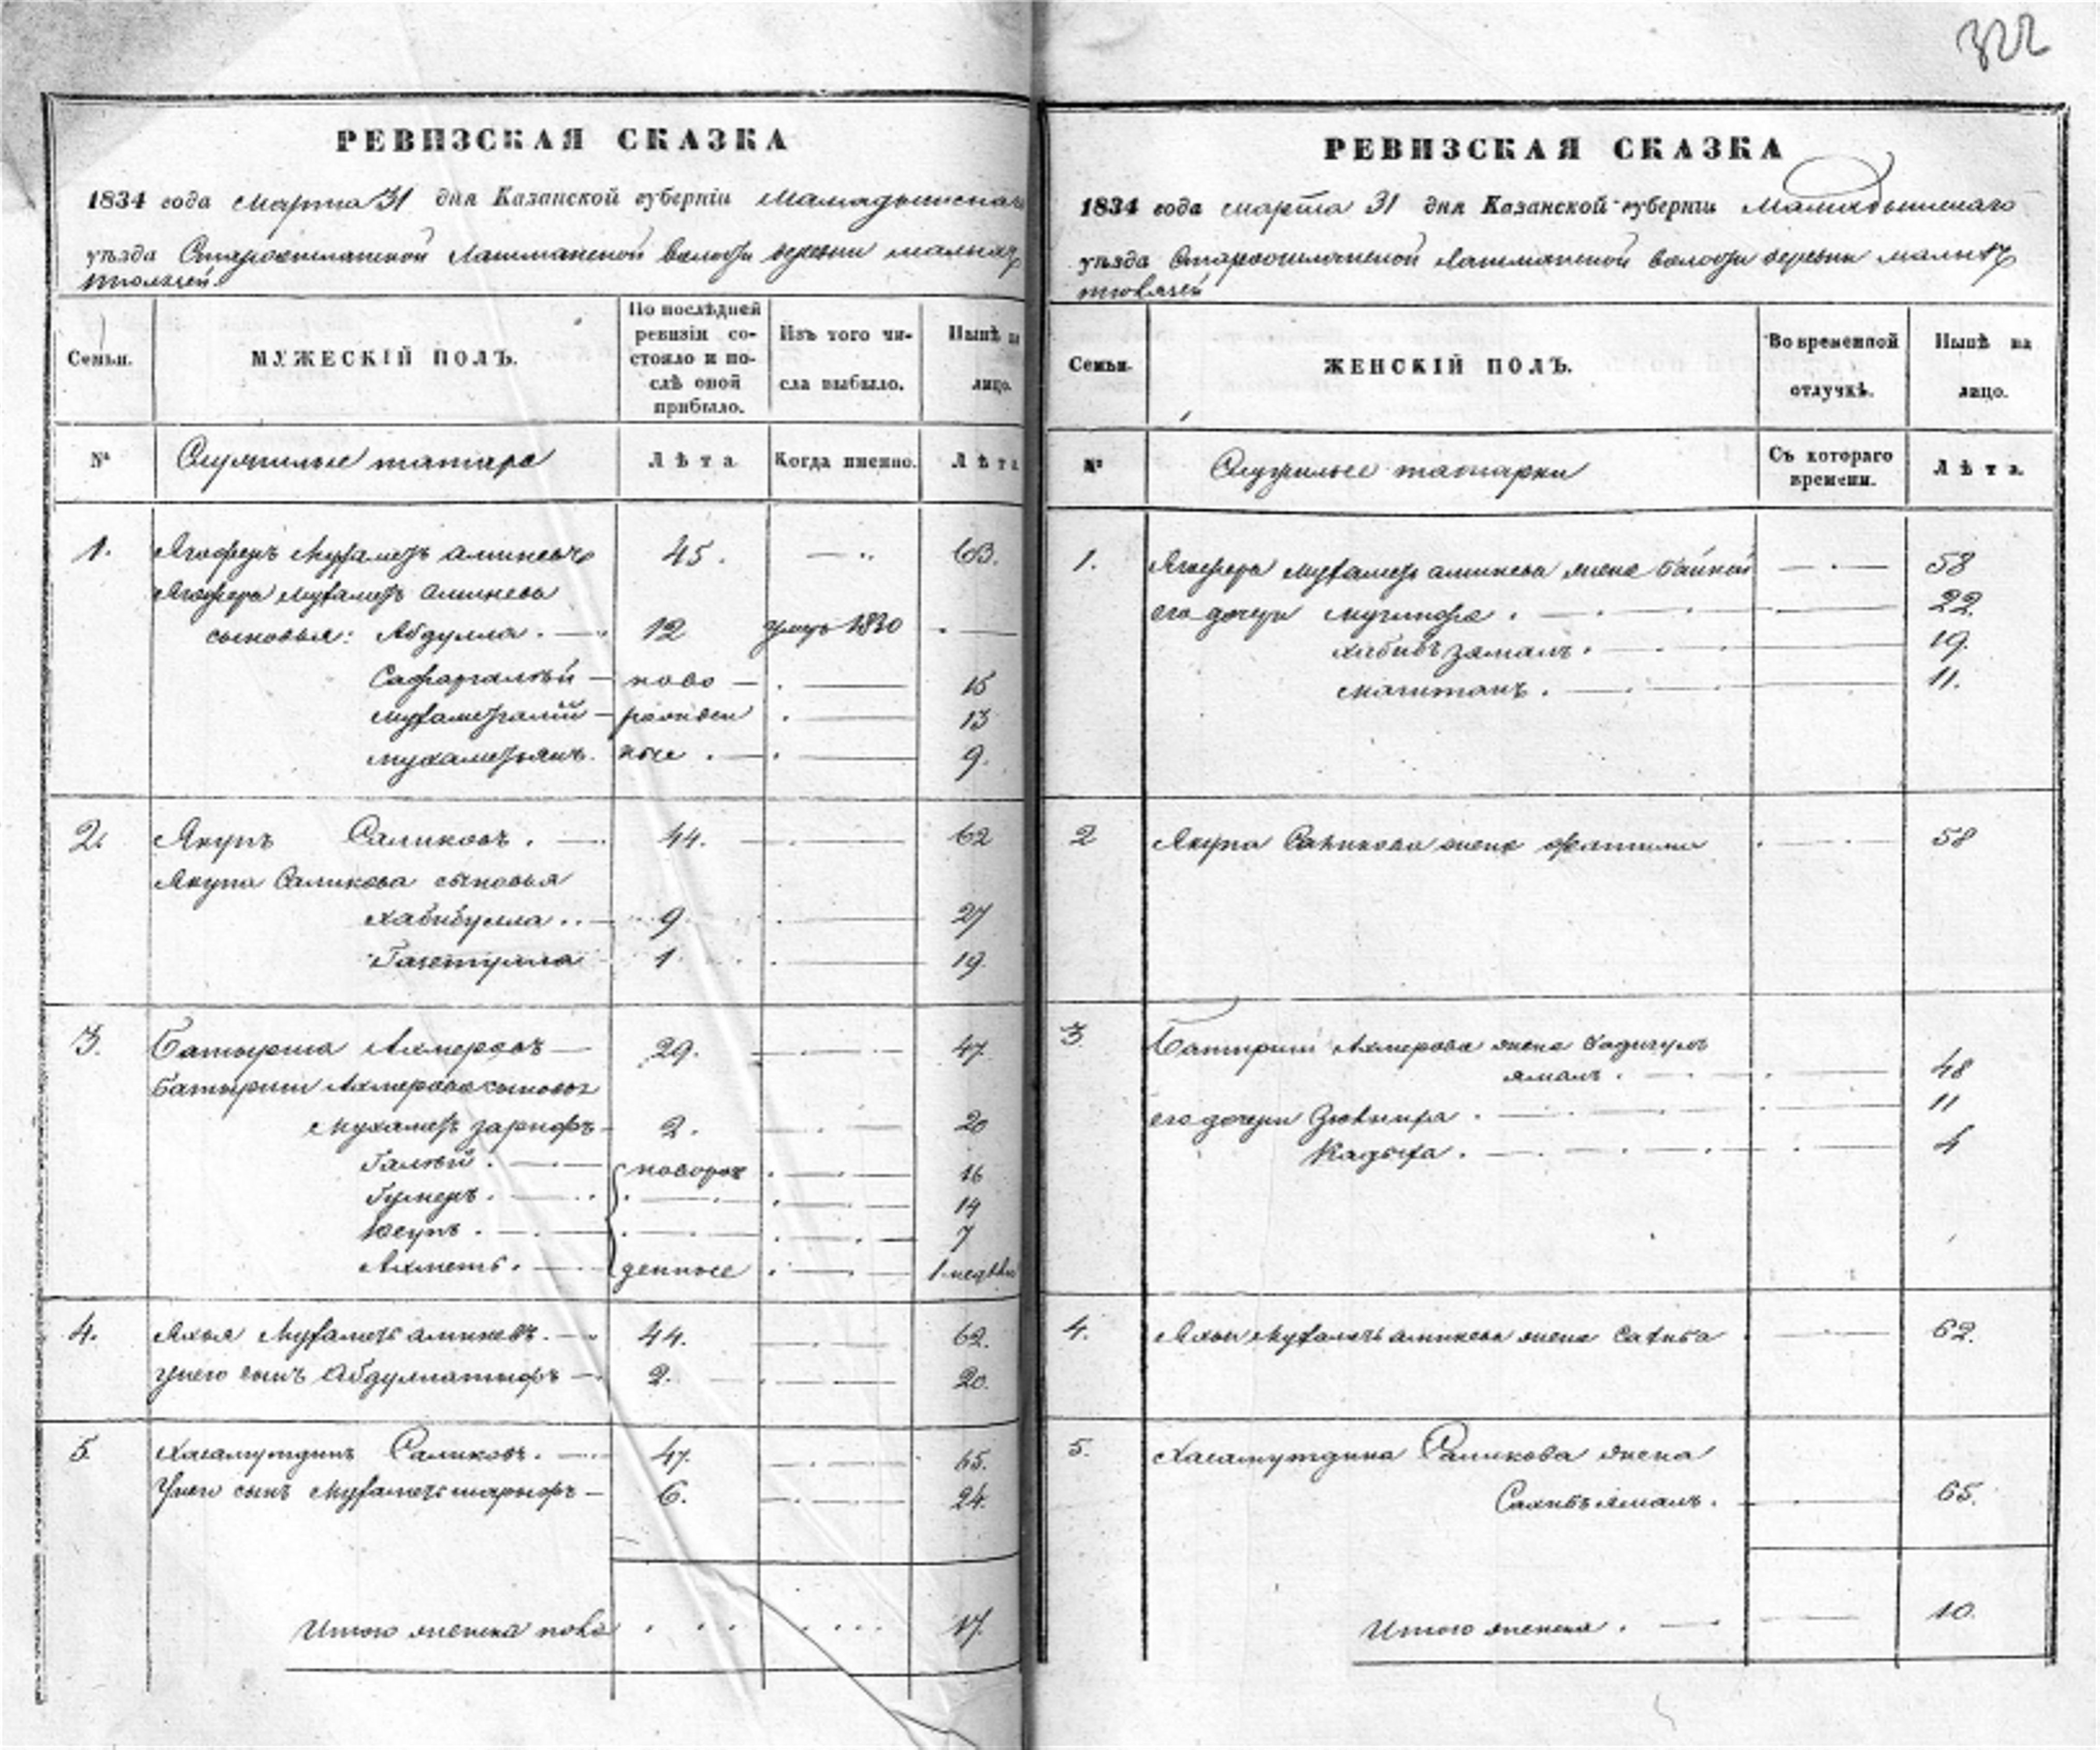 322
РЕВИЗСКАЯ СКАЗКА
1834 года марта 31 дня Казанской губерніи Мамадышскаго
уѣзда Лашманской волости деревни малыхъ
Семьи.
МУЖЕСКІЙ ПОЛЪ.
По послѣдней ревизіи состояло и послѣ оной прибыло.
Изъ того числа выбыло.
Нынѣ на лицо.
№
Служилые татара
Лѣта
Когда именно.
Лѣта
1. Ягоферъ Мухаметъ аминевъ 45. 63.
Ягофера Мухаметъ Аминева
сыновья: Абдулла. 12 умръ 1820
Сафаргалѣй ново 15
Мухаметгалѣй рожден 13
Мухаметьянъ. ные 9.
2. Якупъ Саликовъ. 44. 62
Якупа Саликова сыновья
Хабибулла 9 27
1 19.
3. Батырша Ахмеровъ 29. 47
Батырши Ахмерова сыновья
Мухаметъ зарифъ 2. 20
Галѣй. новорож 16
Гумеръ. 14
Юсупъ. 7
Ахметъ. денные 1 недѣли
4. Яхья Мухаметъ аминевъ. 44. 62.
у него сынъ Абдуллатифъ 2. 20.
5. Хисамутдинъ Саликовъ. 47. 65.
у него сынъ Мухаметъ шарифъ 6. 24.
Итого 17.
РЕВИЗСКАЯ СКАЗКА
1834 года марта 31 дня Казанской губерніи Мамадышскаго
уѣзда Лашманской волости деревни малыхъ
Семьи.
ЖЕНСКІЙ ПОЛЪ.
Во временной отлучкѣ.
Нынѣ на лицо.
№
Служилые татарки
Съ котораго времени.
Лѣта.
1. Ягофера Мухаметъ аминева жена 58
его дочери 22.
Хабибъ замалъ. 19.
11.
2 Якупа Саликова жена Фатима 58
3 Батырши Ахмерова жена
ямалъ. 48
его дочери 11
Кадыха. 4
4. Яхьи Мухаметъ аминева жена 62.
5. Хисамутдина Саликова жена
Сахибъ ямалъ. 65.
Итого женска. 10.